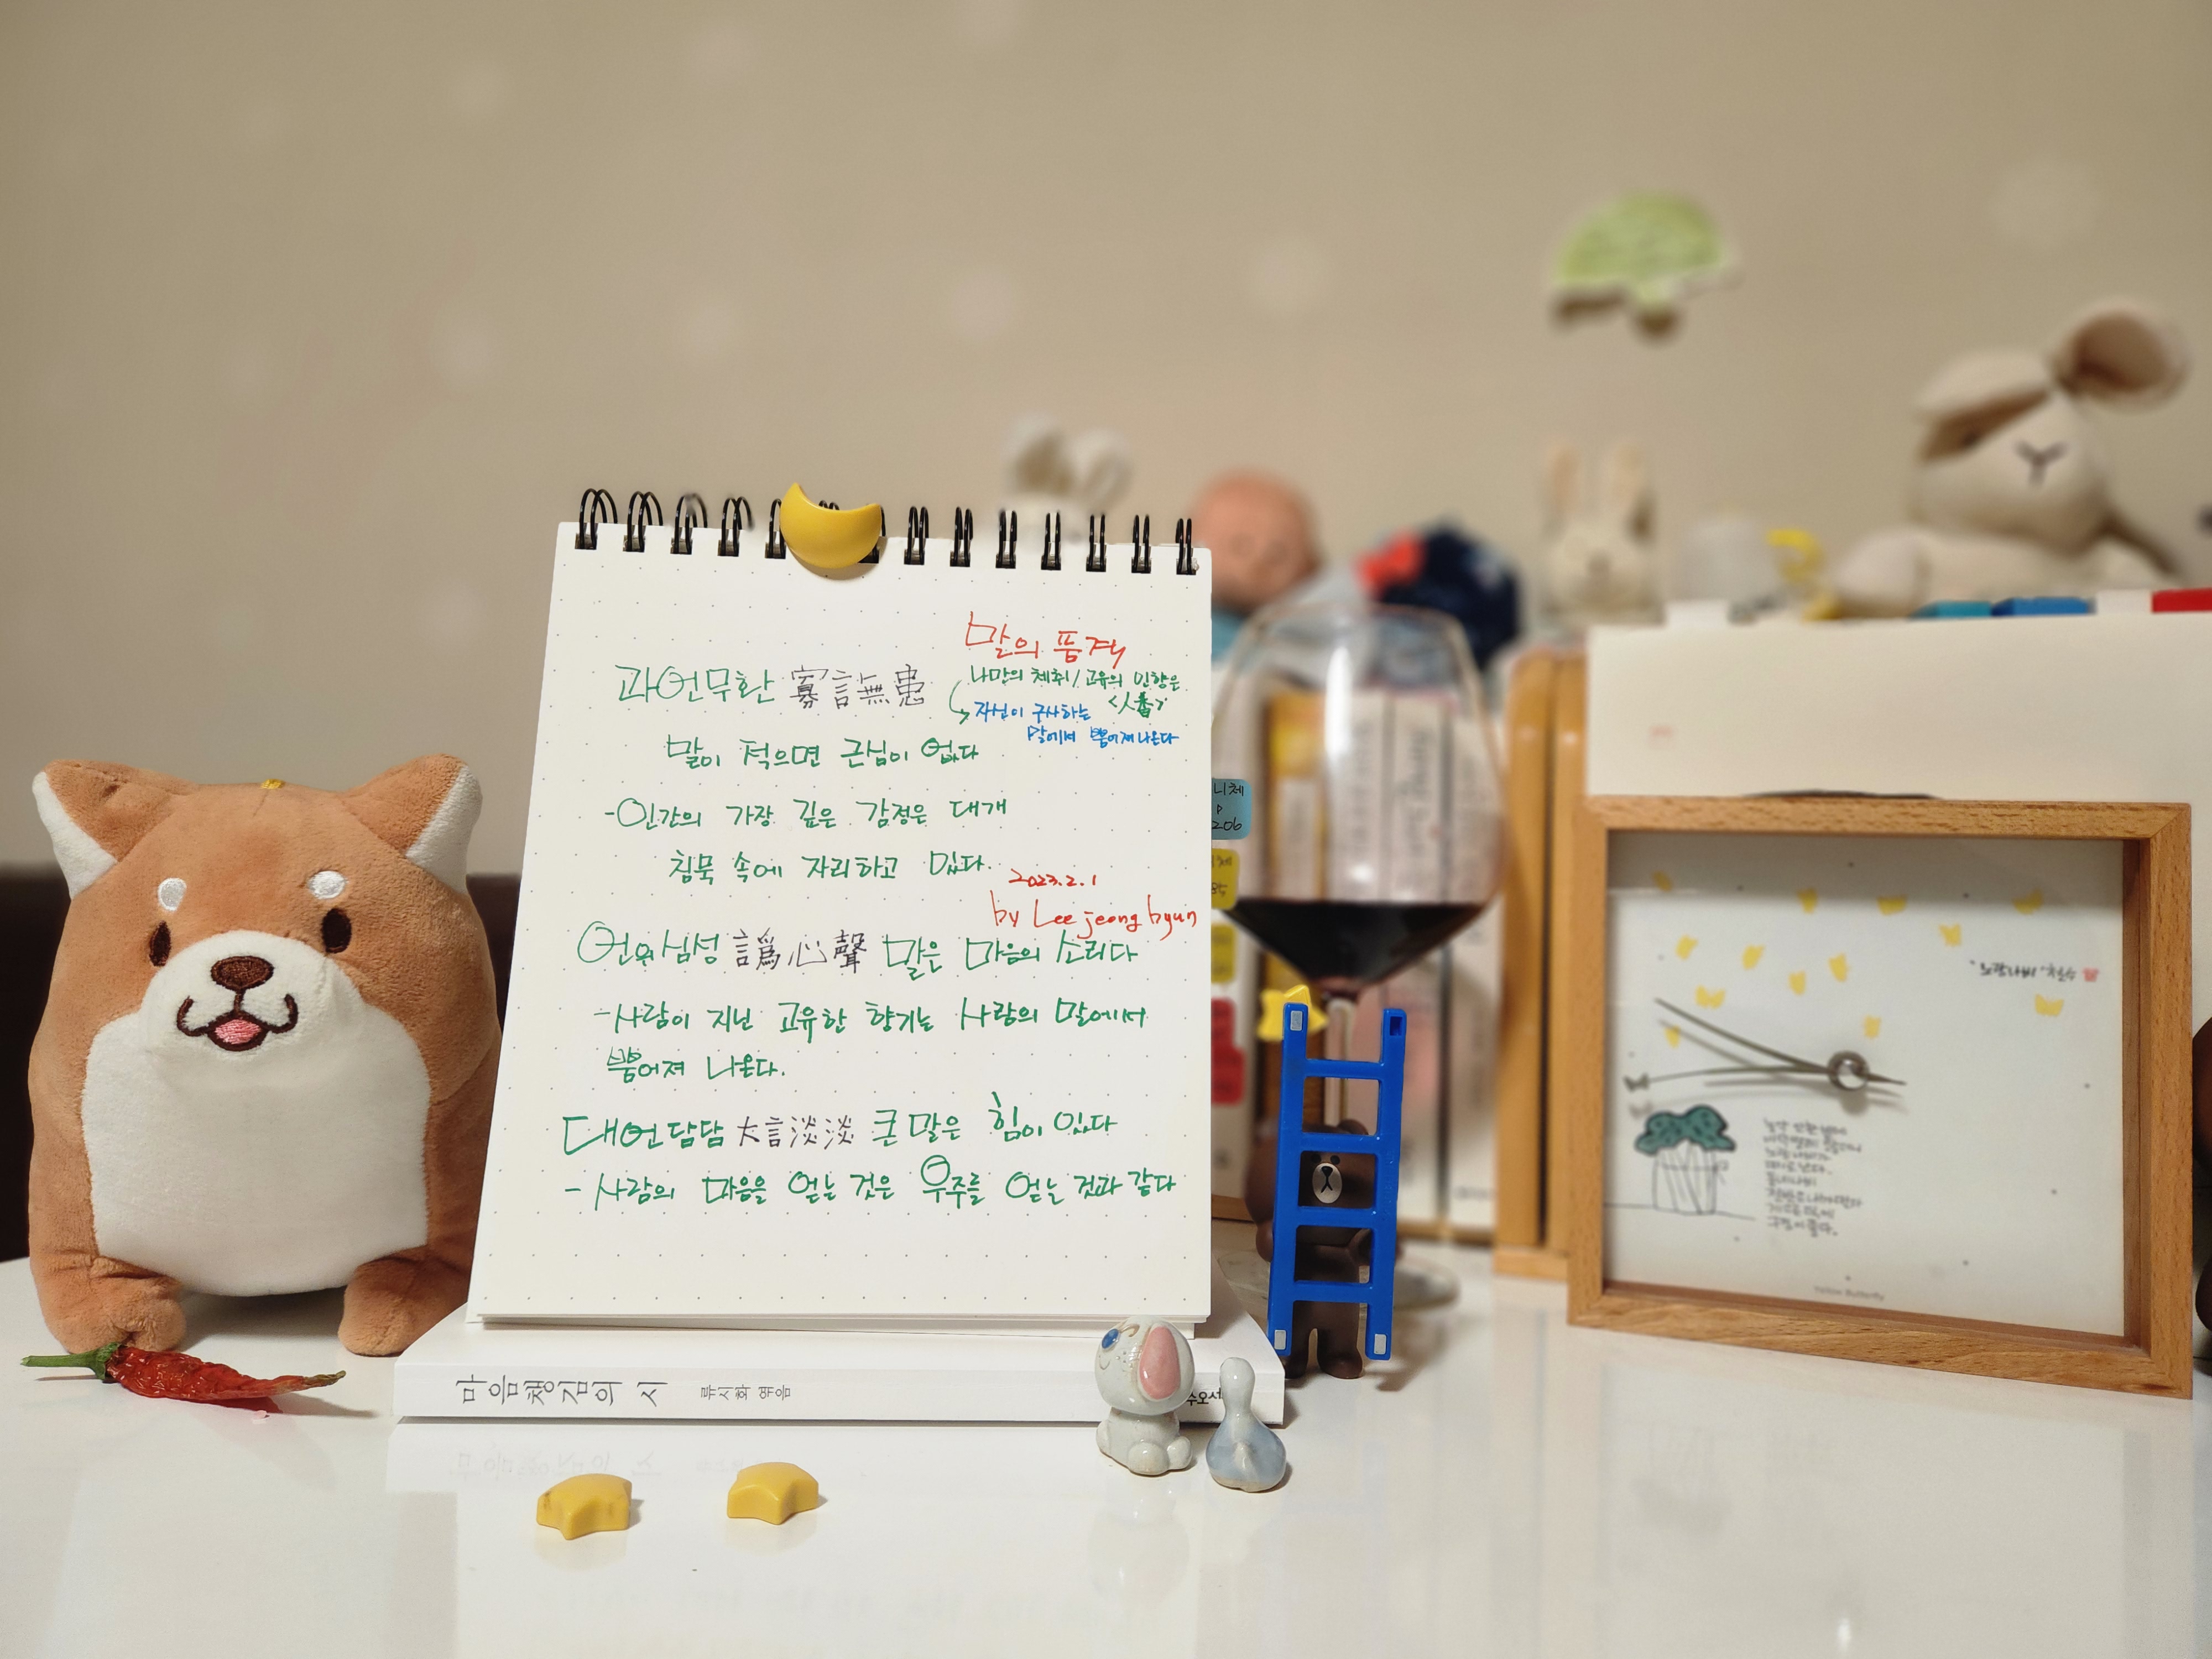 말의 품격
과언무환 寡言無患
나만의 체취/고유의 인향은
<人香>
자신이 구사하는
말에서 뿜어져 나온다
말이 적으면 근심이 없다
-인간의 가장 깊은 감정은 대개
침묵 속에 자리하고 있다.
2023.2.1
by Lee jeong hyun
언위심성 譌心聲 말은 마음의 소리다
-사람이 지닌 고유한 향기는 사람의 말에서
뿜어져 나온다.
대언담담 大言淡淡 큰 말은 힘이 있다
- 사람의 마음을 얻는 것은 우주를 얻는 것과 같다
마음챙김의 시 류시화 엮음 수오서
니체
P
206
"노랑나비" 천수
Yellow Butterfly